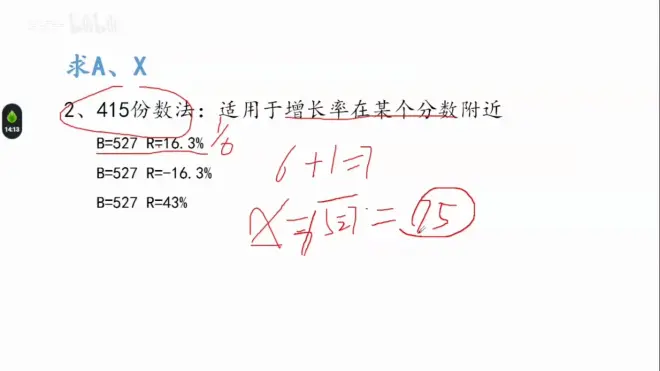 求A、X
2、415份数法：适用于增长率在某个分数附近
B=527 R=16.3% 1/6
B=527 R=-16.3%
B=527 R=43%
6+1=7
=75
14:13